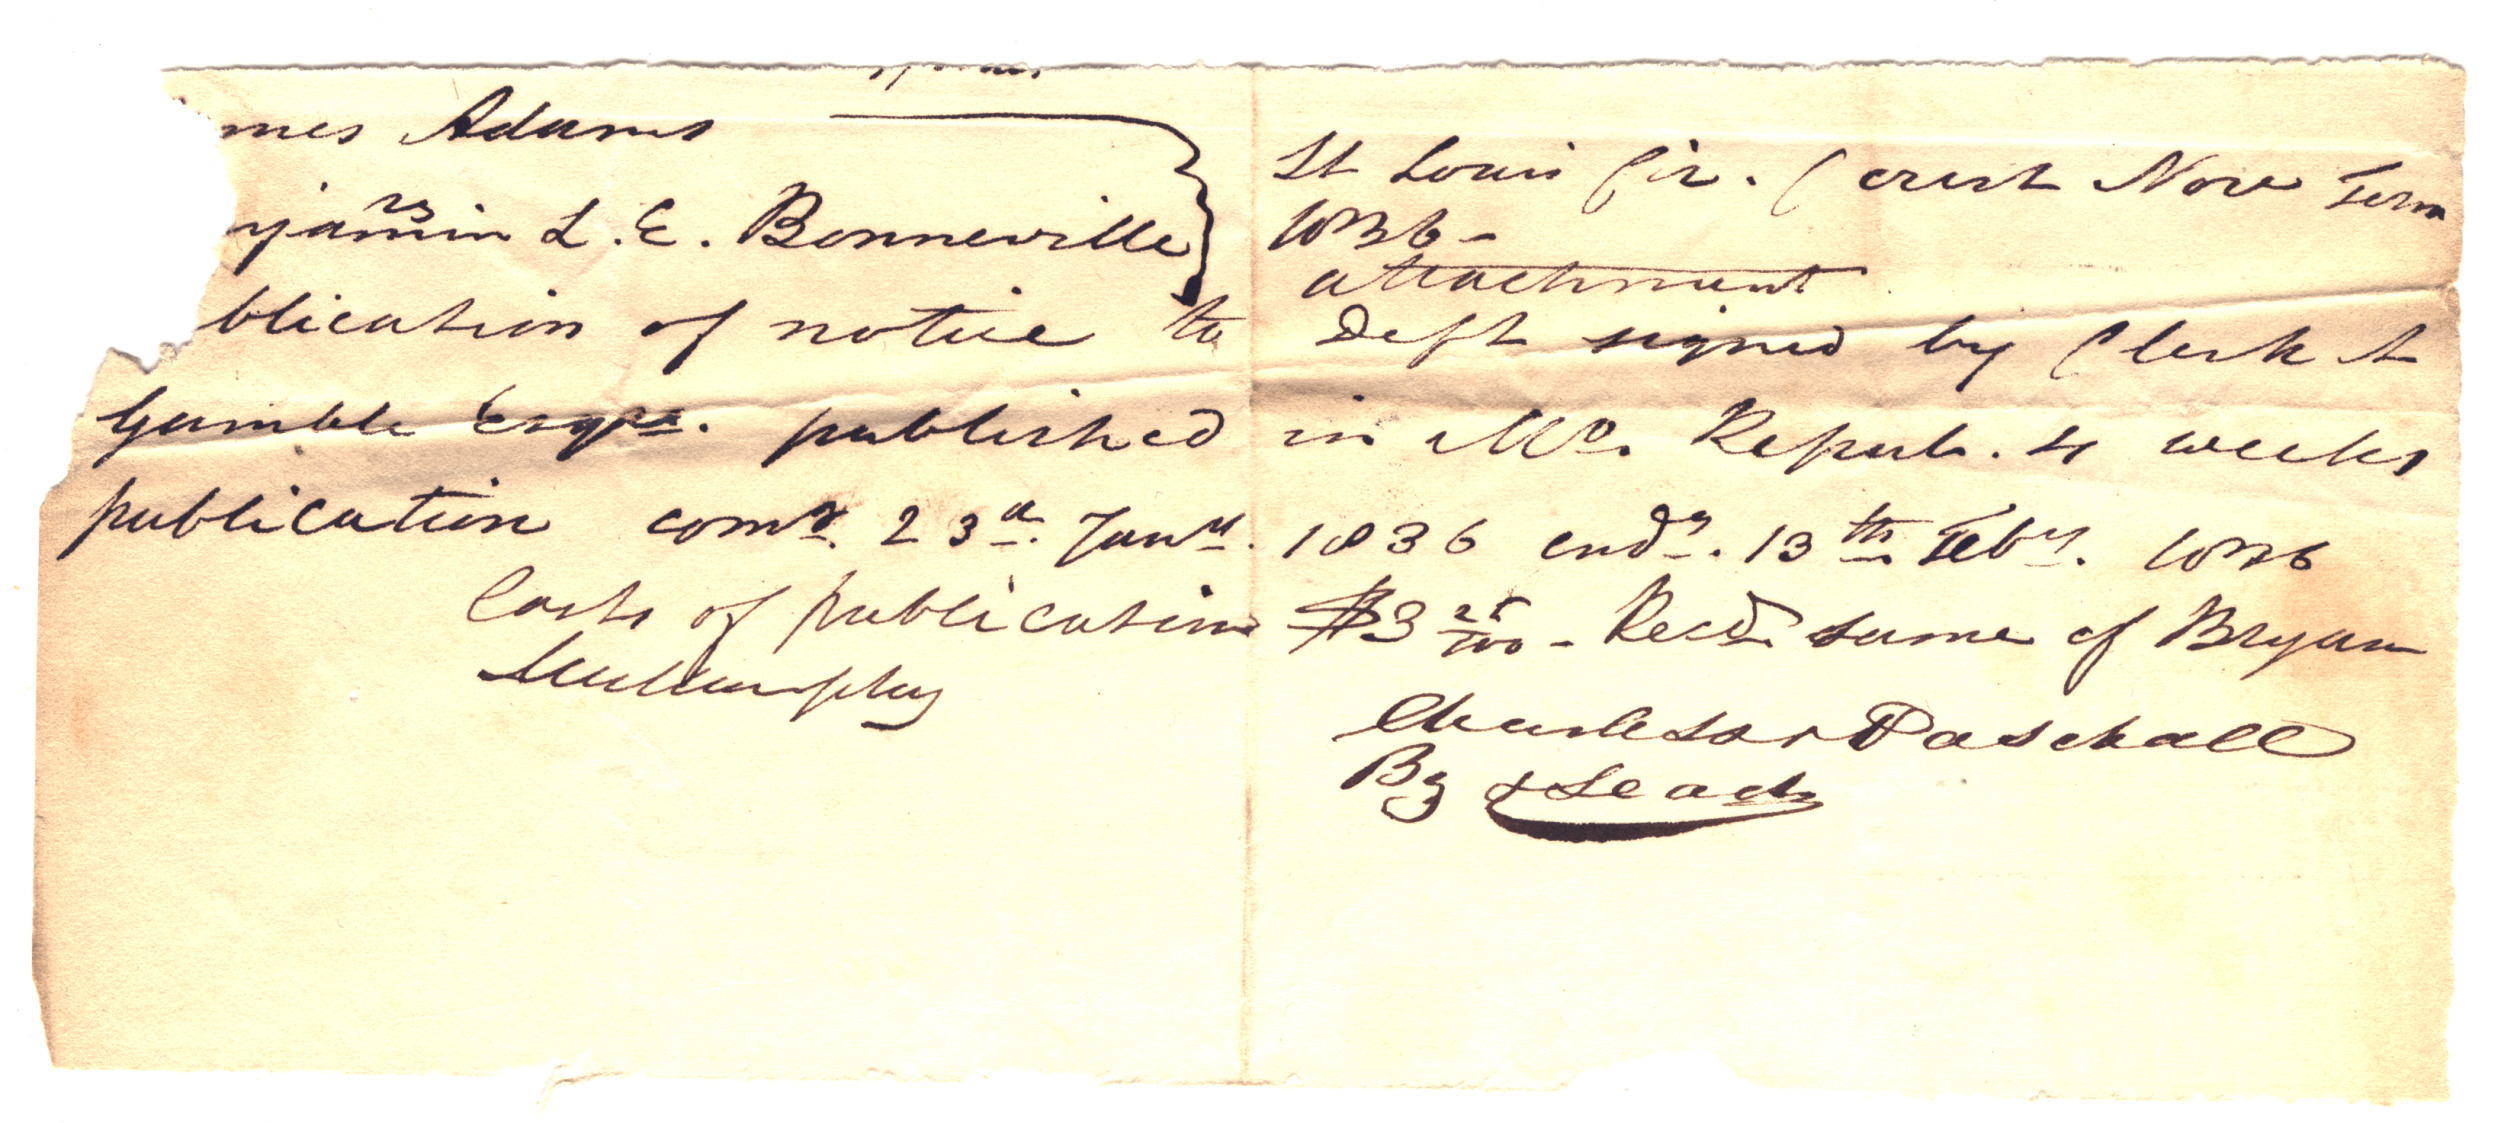 mes Adams
vs
yamin L. E. Bonneville
St Louis Cir. Court Nov Term
1836 -
attachment
blication of notice to Deft signed by Clerk &
Gamble Esqrs. published in Mo. Repub. 4 weeks
publication comg. 23d. Jany. 1836 endg. 13th Feby. 1836
Costs of publication $3 25/100 - Recd. same of Bryan
Mullanphy
Charless & Paschall
By